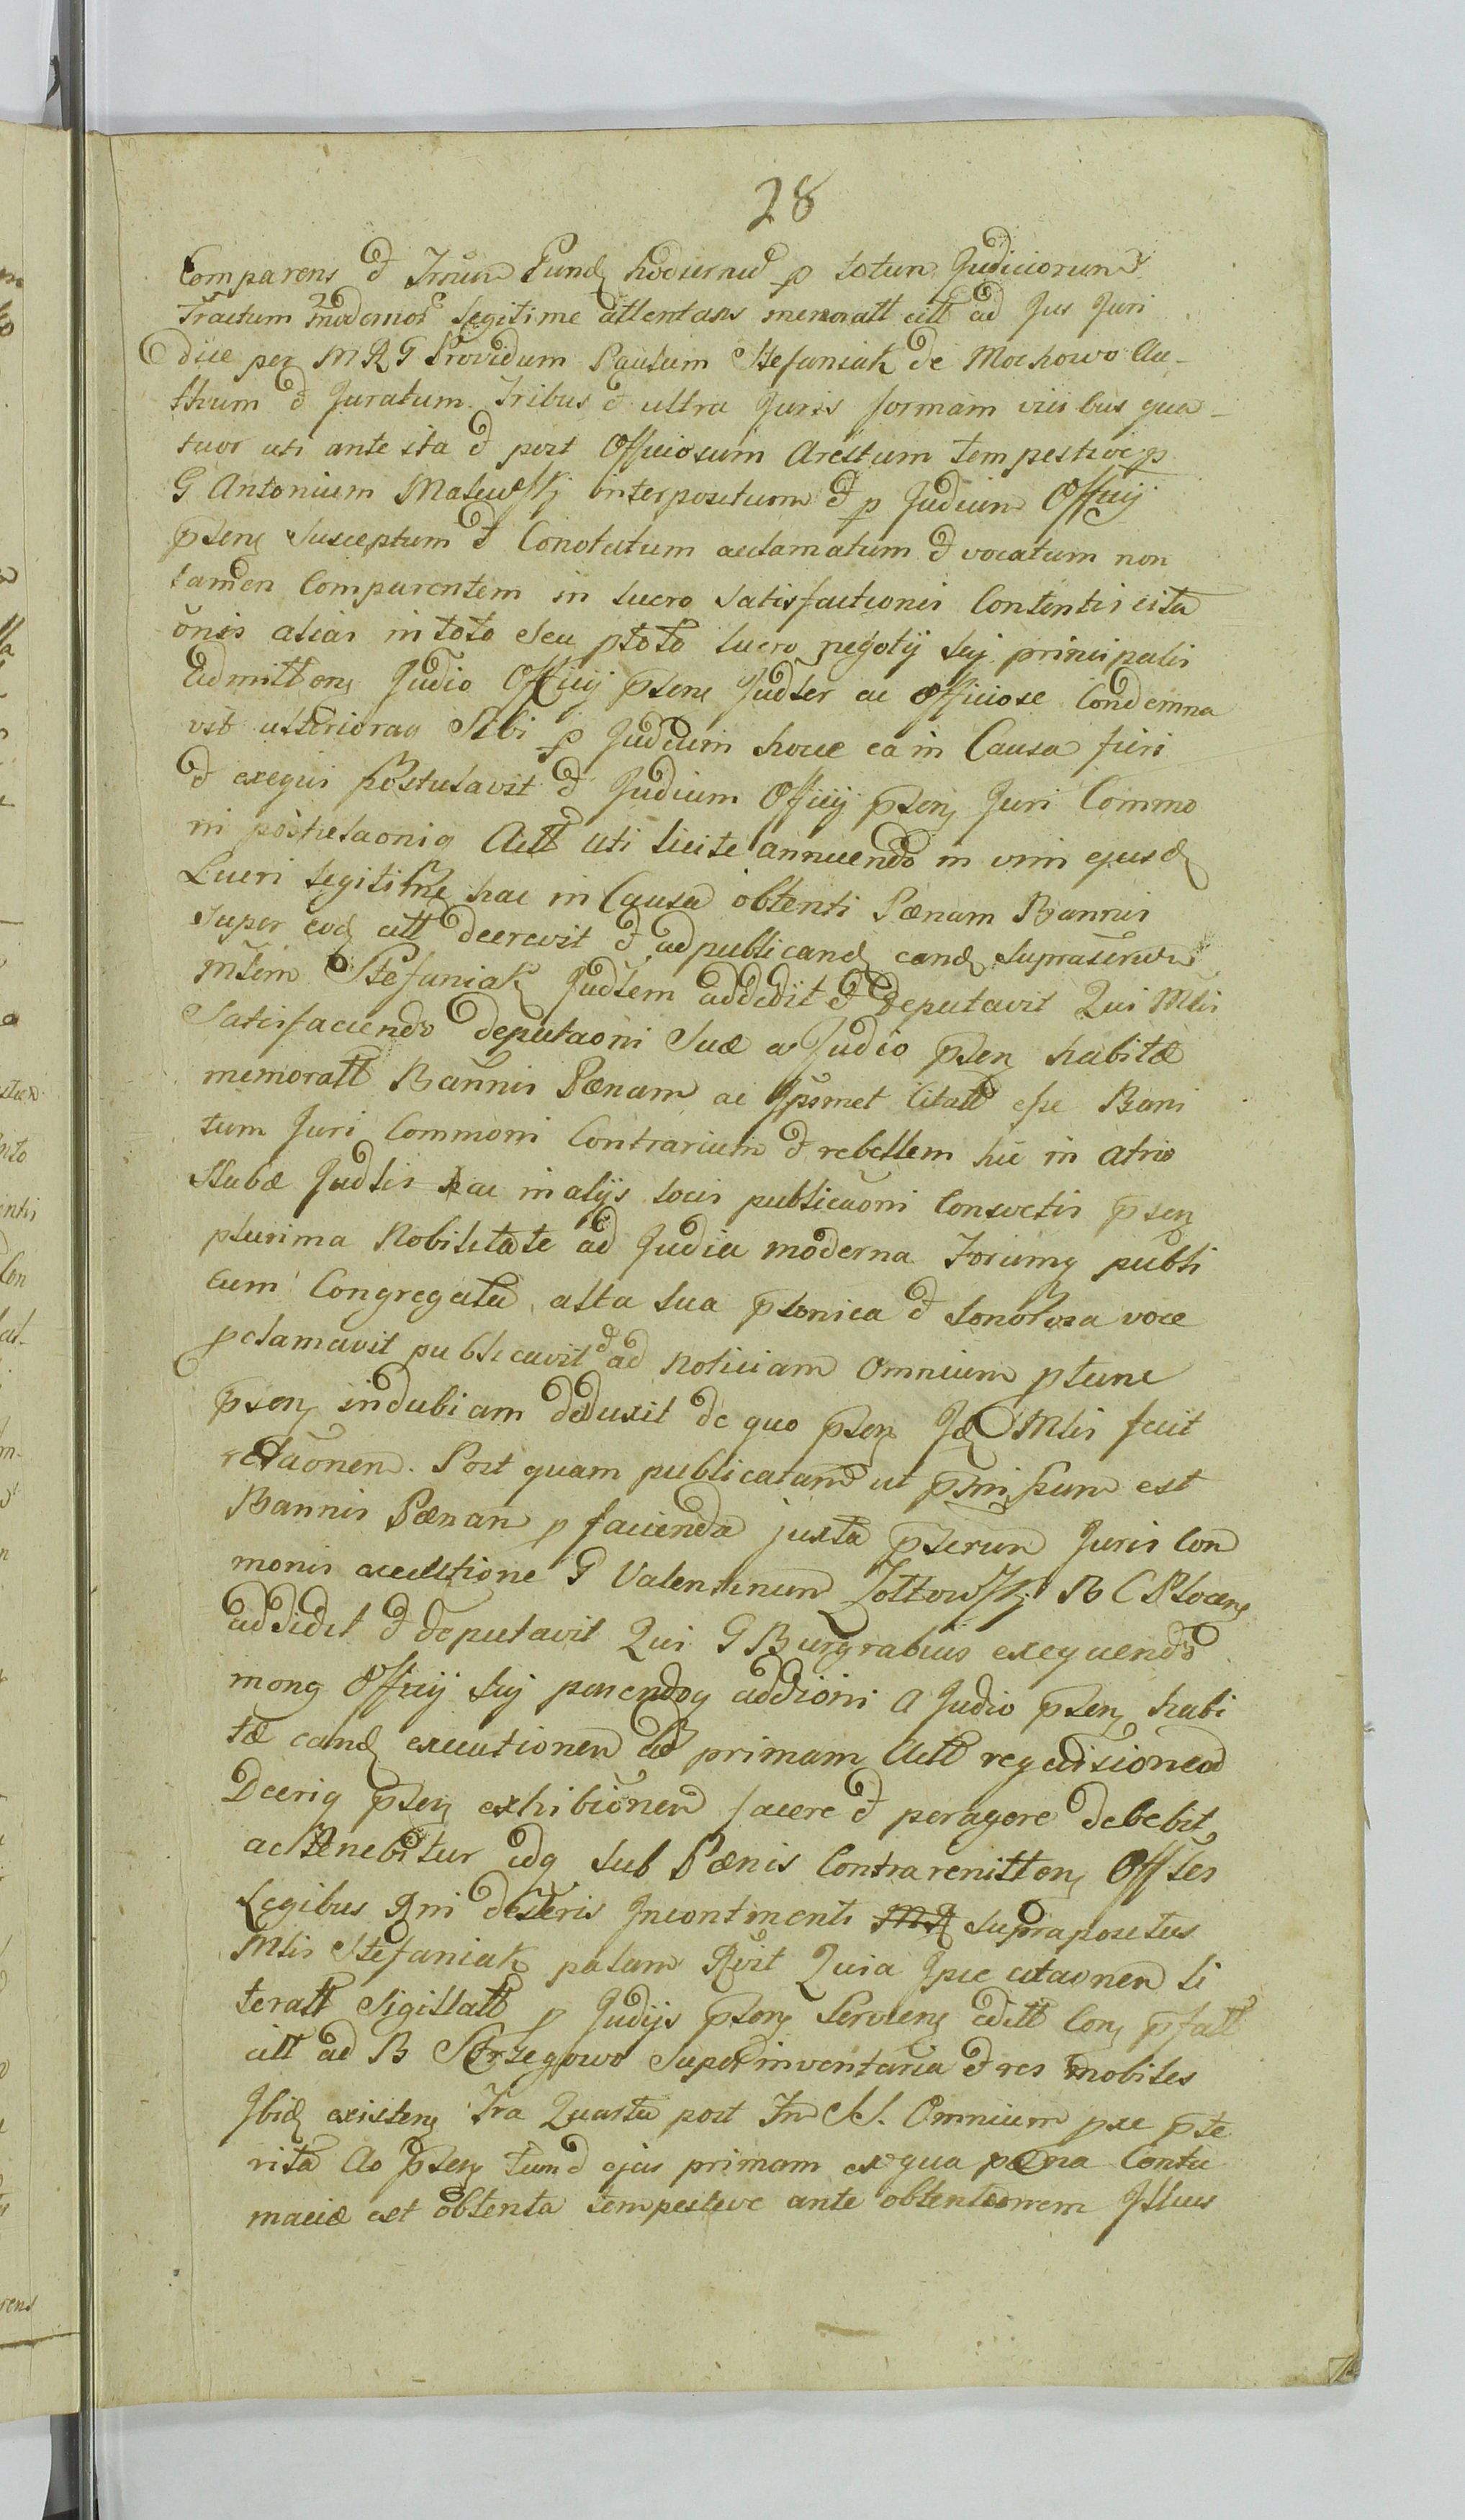 28
Comparens & Trnum Pund hodiernu p totum Judiciorum
Tractum modernor Legitime attentans memoratt citt ad Jus Juri
dice per MRG Providum Paulum Stefaniak de Mochowo Au-
thum & Juratum Tribus & ultra Juris formam viis bus qua-
tuor uti ante ita & post Officiosum Arestum tempestive p
G Antonium Malewskj interpositum & p Judicium Officij
psens susceptum & Conotatum acclamatum & vocatum non
tamen Comparentem in lucro satisfactionis Contentis cita
onis alias in toto seu ptoto lucro negotij sui principalis
Admittens Judio Officij psens Judler ac officiose Condemna
vit ulterioraq Sibi p Judicium hocce ea in Causa fieri
& exequi postulavit & Judicium Officij psens Juri Commo
ni postulaoniq Actt uti licite annuendo in vim ejusd
Lucri legitime hac in Causa obtenti Pænam Bannis
super eod citt decrevit & ad publicand eand suprascrum
Mlem Stefaniak Judlem addidit & deputavit Qui Mlis
Satisfaciendo deputaoni suæ a Judio psen habitæ
memoratt Bannis Pænam ac Jpsmet Citatt esse Bani
tum Juri Commoni Contrarium & rebellem hic in atrio
stubæ Judlis ac in alijs locis publicaoni Consvetis psen
plurima Nobilitate ad Judia moderna Forumq publi
cum Congregata, alta sua psonica & sonorosa voce
pclamavit publicavit & ad noticiam omnium ptunc
psen indubiam deduxit de quo psen Jdem Mlis fecit
relaonem. Post quam publicatam ut pmissum est
Bannis Pænam p facienda juxta pscrum Juris Com
monis executione G Valentinum Zottowskj B C Plocen
addidit & deputavit Qui G Burgrabius exequendo
monq Officij sui parendoq addioni a Judio psen habi
tæ eand executionem ad primam Actt requisitionem
Decriq psen exhibionem facere & peragere debebit
ac tenebitur idq sub Pænis Contra renitten Offles
Legibus Rni descris Jncontinenti suprapositus
Mlis Stefaniak palam Rvit Quia Jpse citaonem li
teratt Sigillatt p Judijs psen Servien editt Con pfatt
citt ad B Strzegowo super inventaria & res mobiles
Jbid existen Fra Quarta post Fm SS. Omnium pxe pte
rita Ao psen tum & ejus primam ex qua pæna Contu
maciæ est obtenta tempestive ante obtentionem Jstius